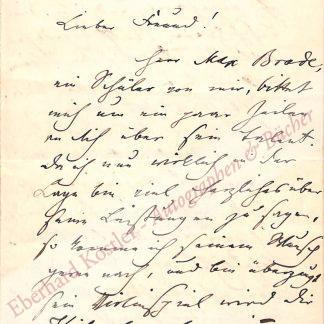 Lieber Freund!
Herr Max Brode,
ein Schüler von mir, bittet
mich um ein paar Zeilen
an Dich über sein Talent.
Da ich nun wirklich in der
Lage bin, viel herzliches über
seine Leistungen zu sagen,
so komme ich seinem Wunsch
gerne nach, und bin überzeugt
sein Violinspiel wird die
Eberhard Köstler - Autographen & Bücher